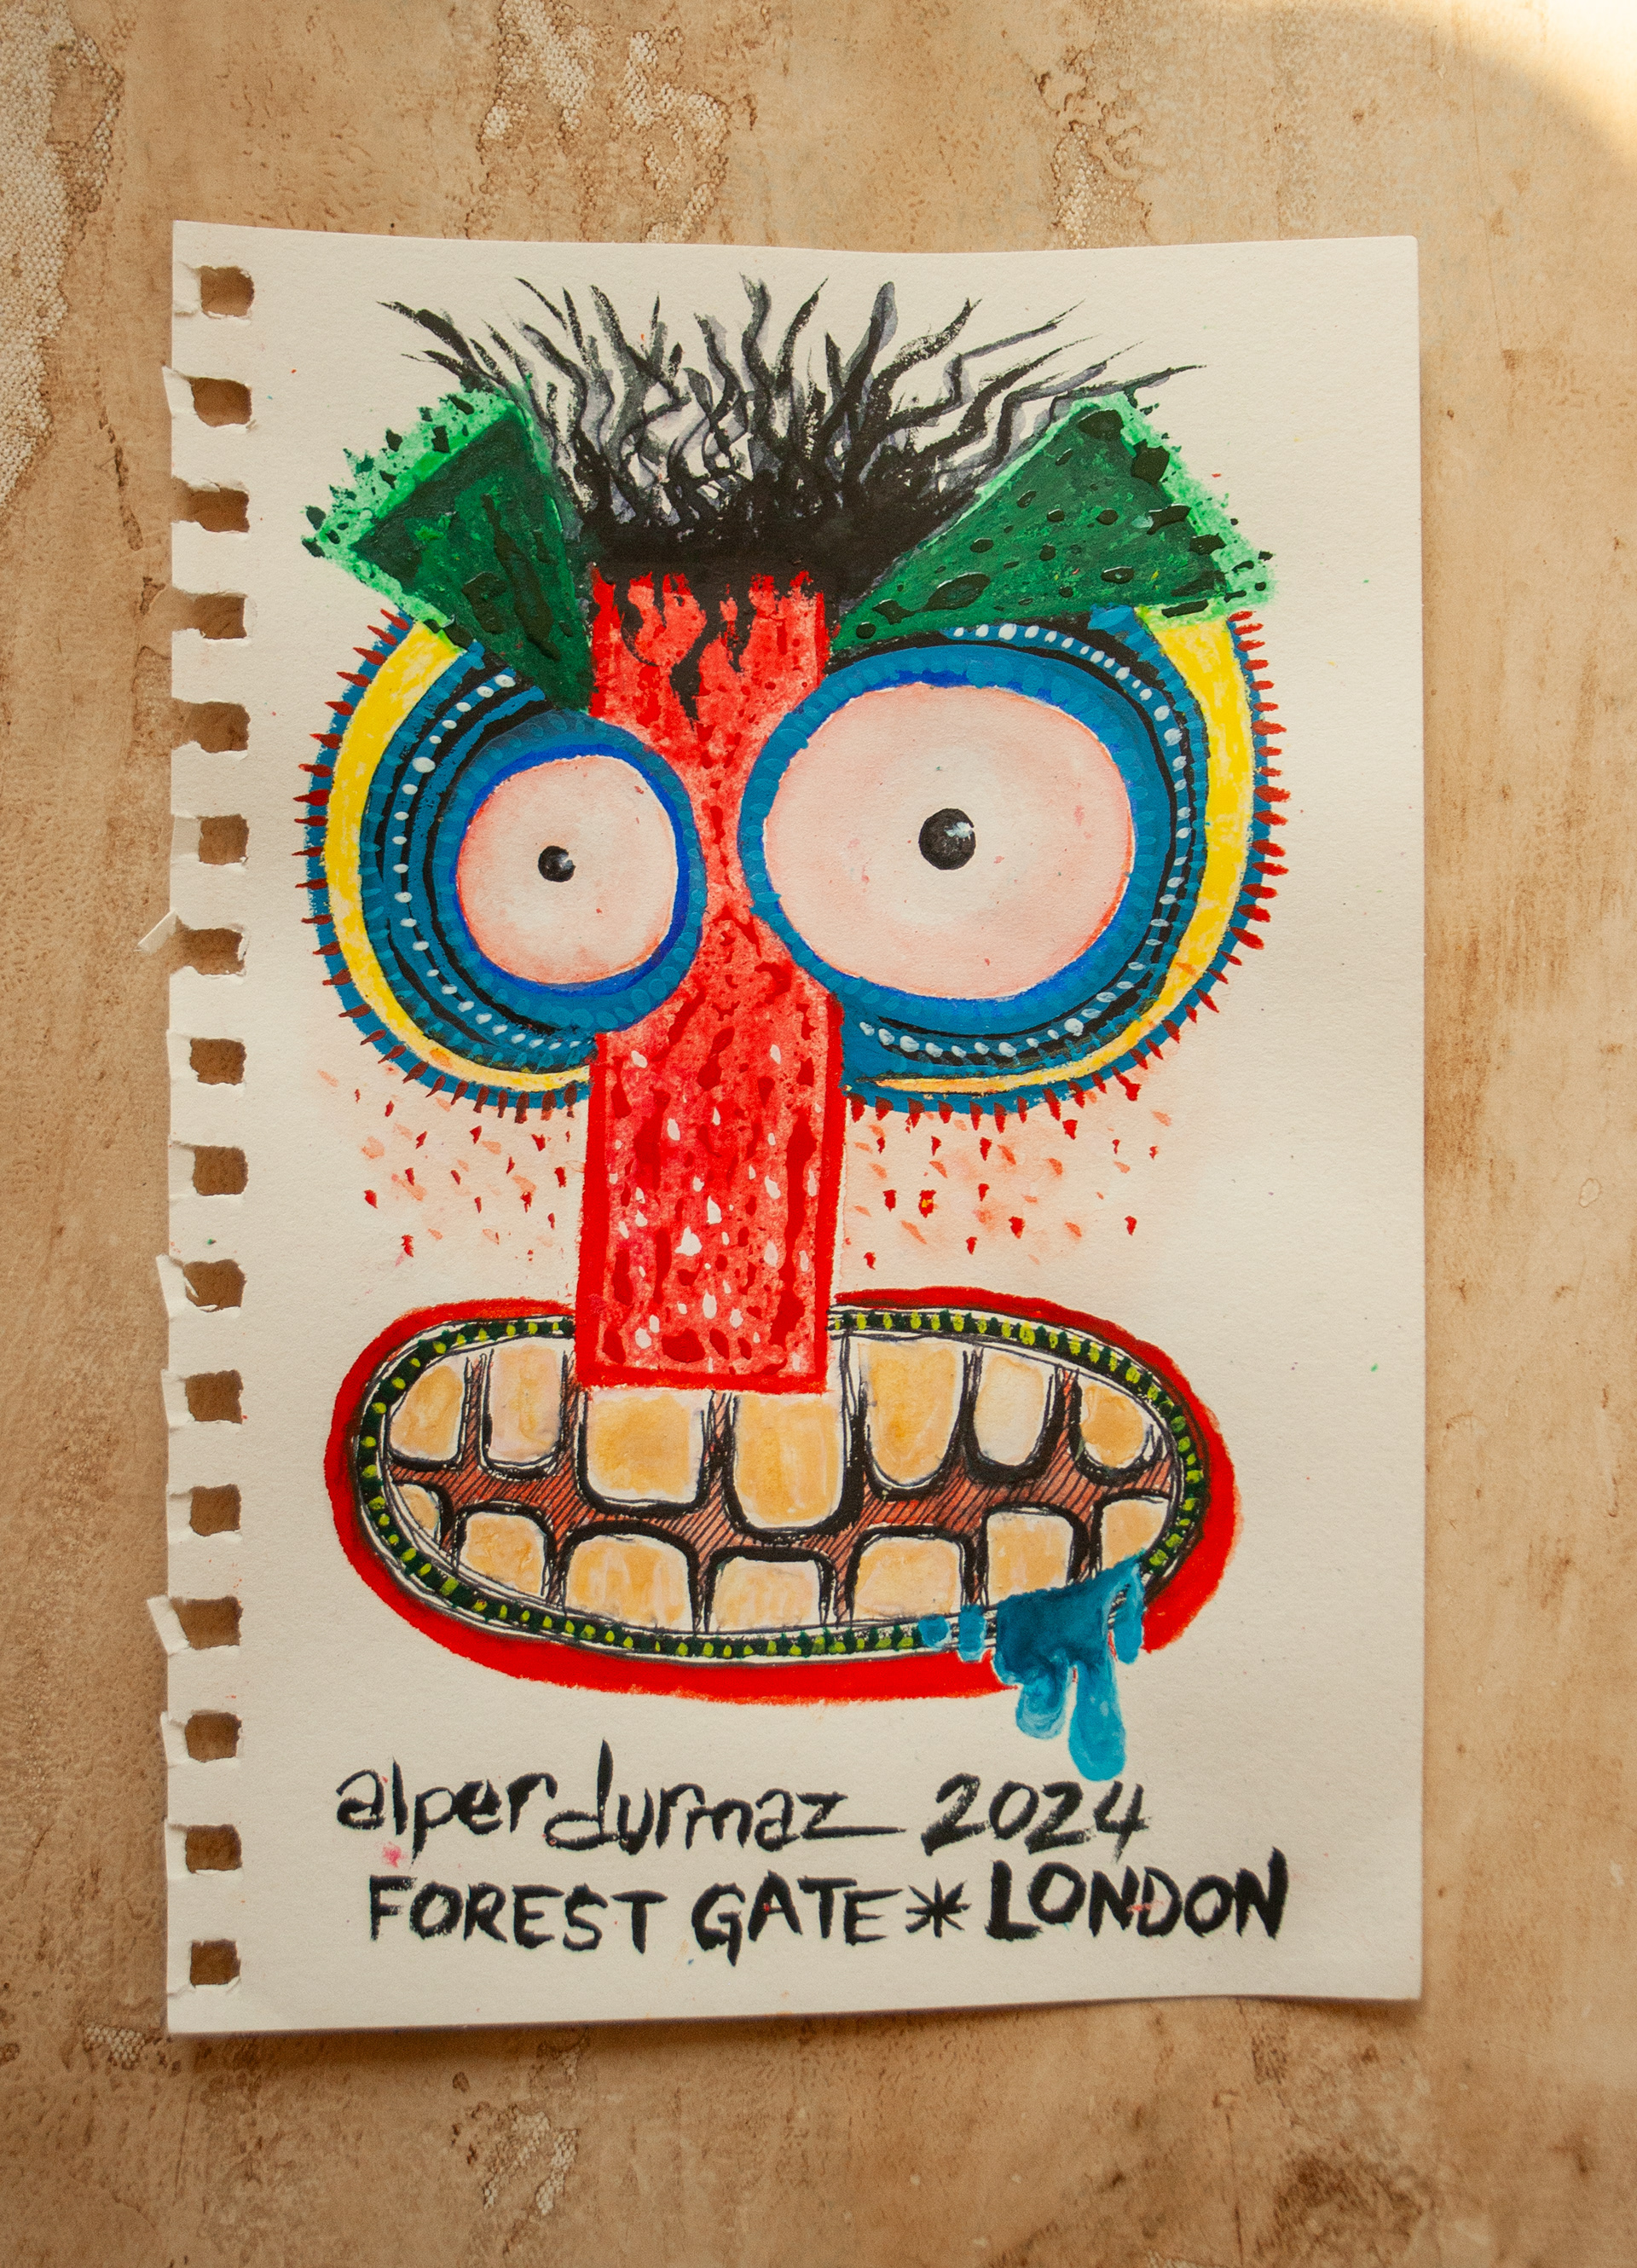 alper durmaz 2024
FOREST GATE * LONDON